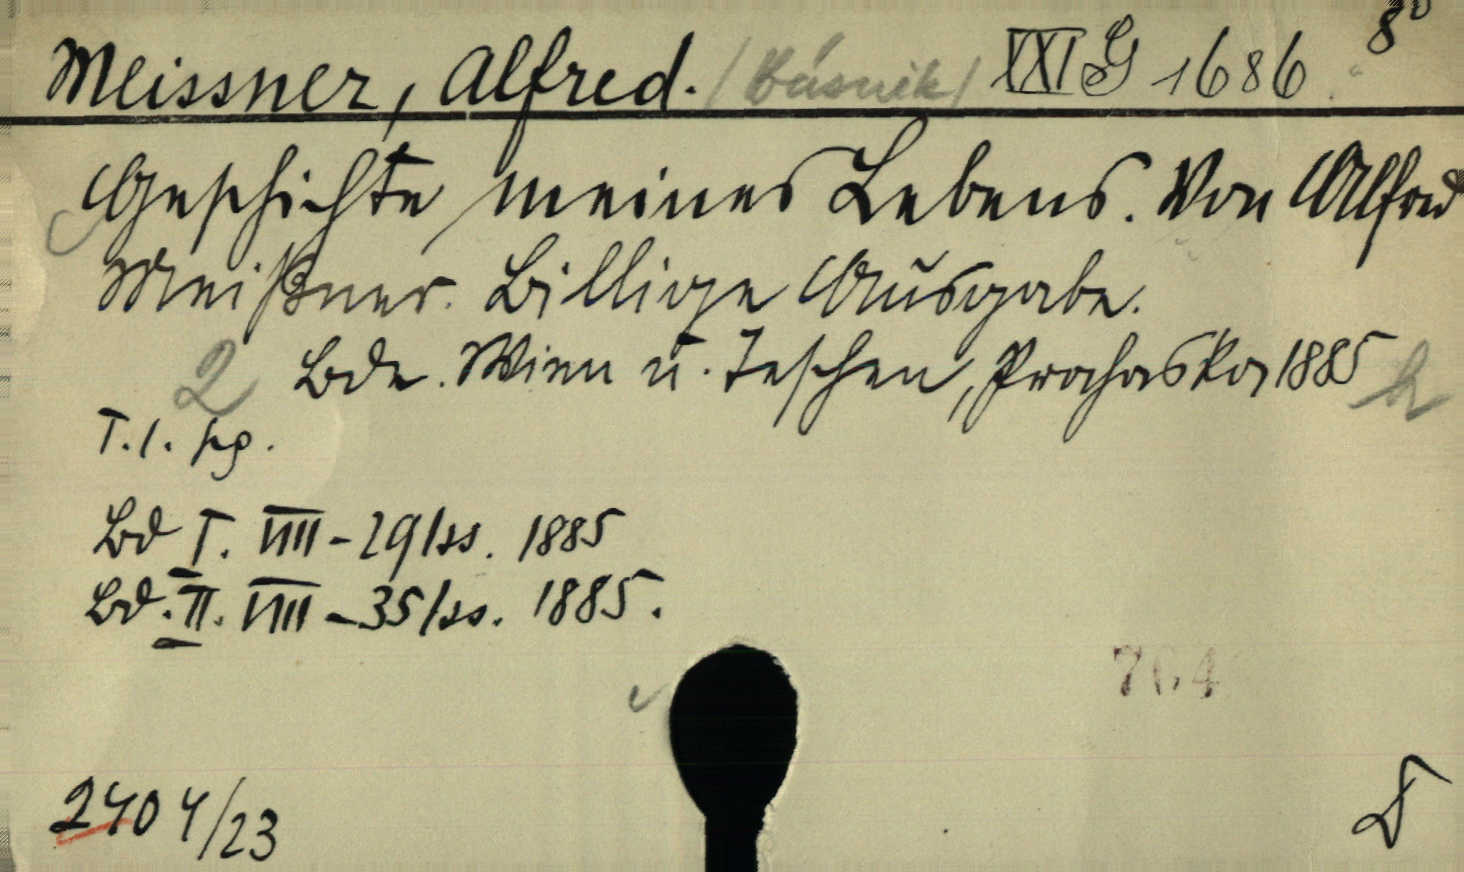 Meissner, Alfred. /Básník/ XXI G 1686 8°
Geschichte meines Lebens. Von Alfred
Meißner. Billige Ausgabe.
2 Bde. Wien u. Teschen, Prochaska 1885
T. I. pg.
Bd I. VIII - 291 ss. 1885
Bd. II. VIII - 351 ss. 1885.
764
2404/23